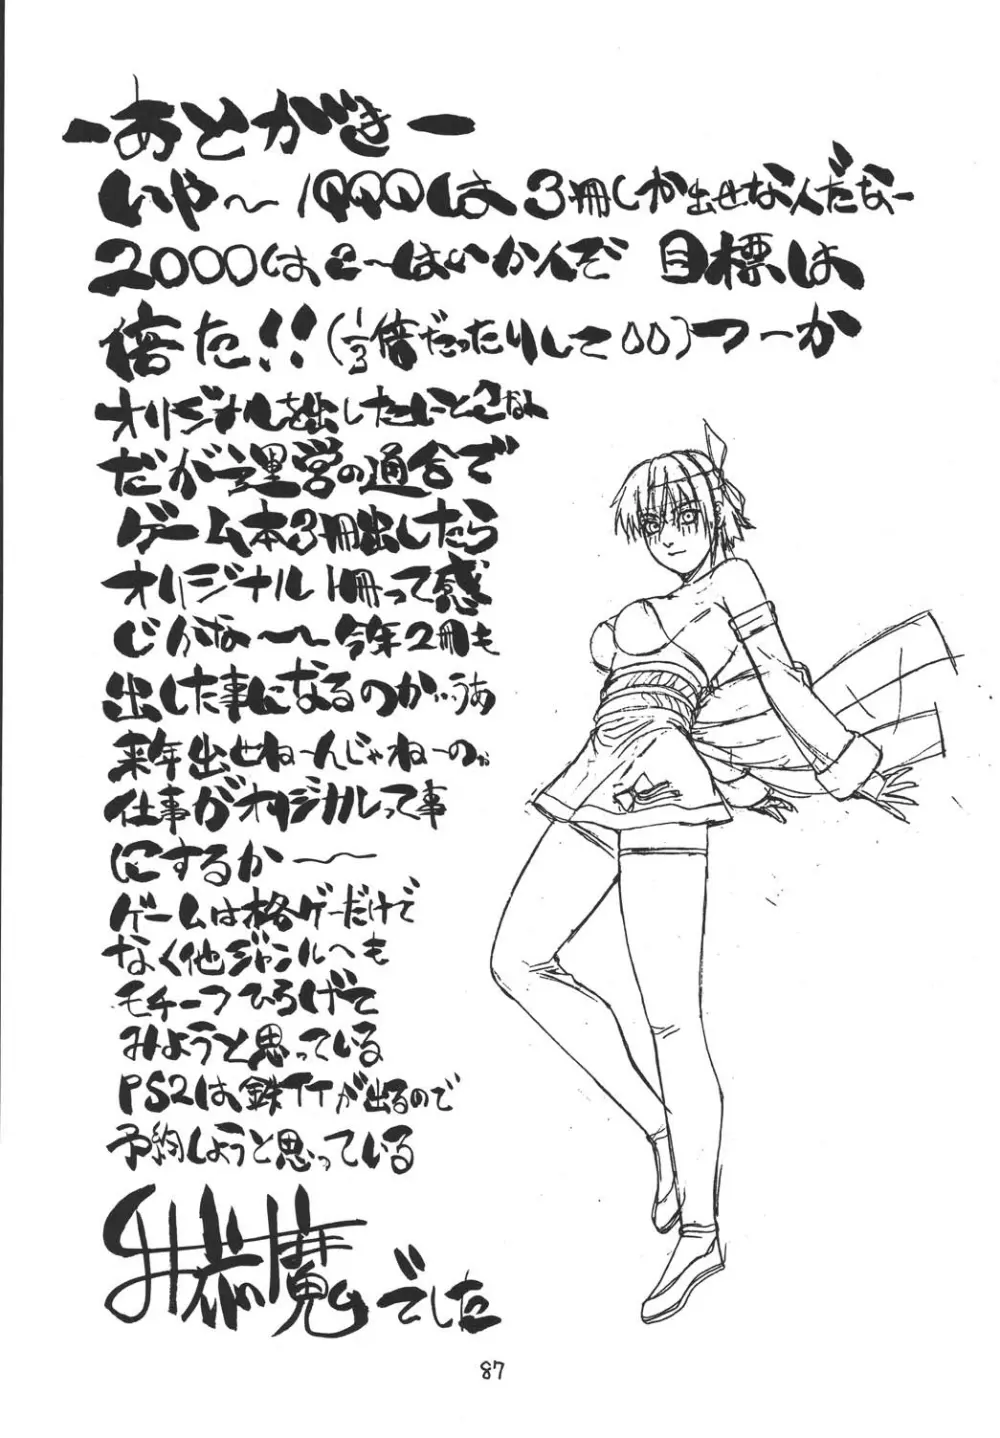 ーあとがきー
いや〜1999は3冊しか出せなんだなー
2000は2〜はいかんぞ 目標は
倍だ!!(1/3倍だったりして00)つーか
オリジナルを出したいとこなん
だが運営の都合で
ゲーム本3冊出したら
オリジナル1冊って感
じかな〜〜今年2冊も
出した事になるのか…うあ
来年出せねーんじゃねーの
仕事がオリジナルって事
にするか〜〜
ゲームは格ゲーだけで
なく他ジャンルへも
モチーフひろげて
みようと思っている
PS2は鉄TTが出るので
予約しようと思っている
でした
87